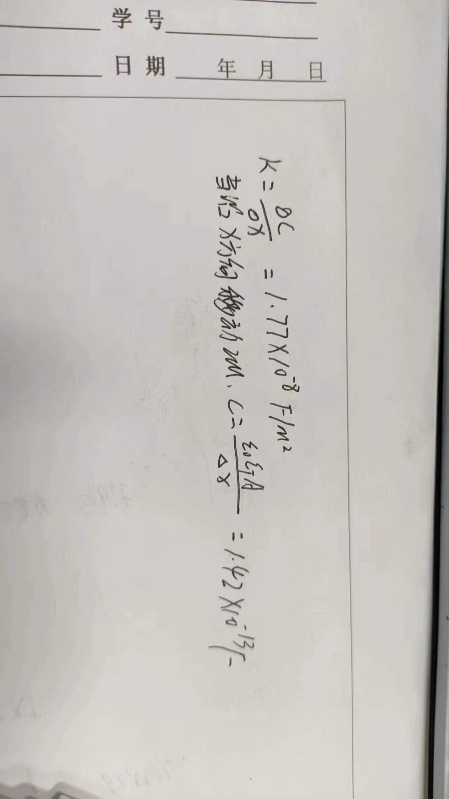 学 号
日 期 年 月 日
K = ΔC/ΔX = 1.77×10⁻⁸ F/m²
当沿X方向移动2m, C = ε₀εᵣA/Δx = 1.42×10⁻¹³F